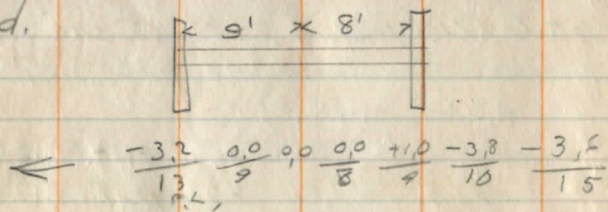 d.
9' 8'
-3,2/13 0,0/9 0,0 0,0/8 +1,0/9 -3,8/10 /15